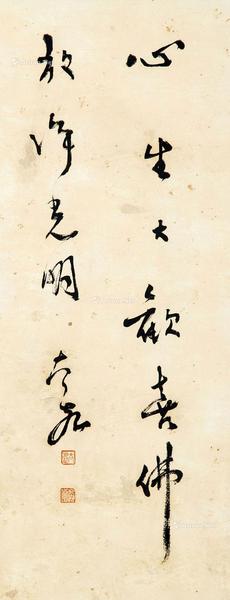 心生大歡喜佛
放淨光明 太虛